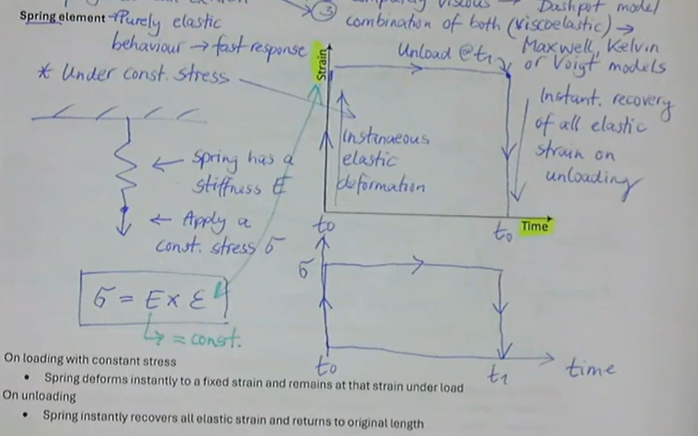 Dashpot model
Spring element → Purely elastic
behaviour → fast response
* Under const. stress
③
combination of both (viscoelastic) →
Maxwell, Kelvin
or Voigt models
Unload @t1
Strain
Instant. recovery
of all elastic
strain on
unloading
Instanaeous
elastic
deformation
← Spring has a
stiffness E
← Apply a
const. stress σ
t0
t0
Time
σ
σ = E x ε
↳ = const.
t0
t1
time
On loading with constant stress
• Spring deforms instantly to a fixed strain and remains at that strain under load
On unloading
• Spring instantly recovers all elastic strain and returns to original length